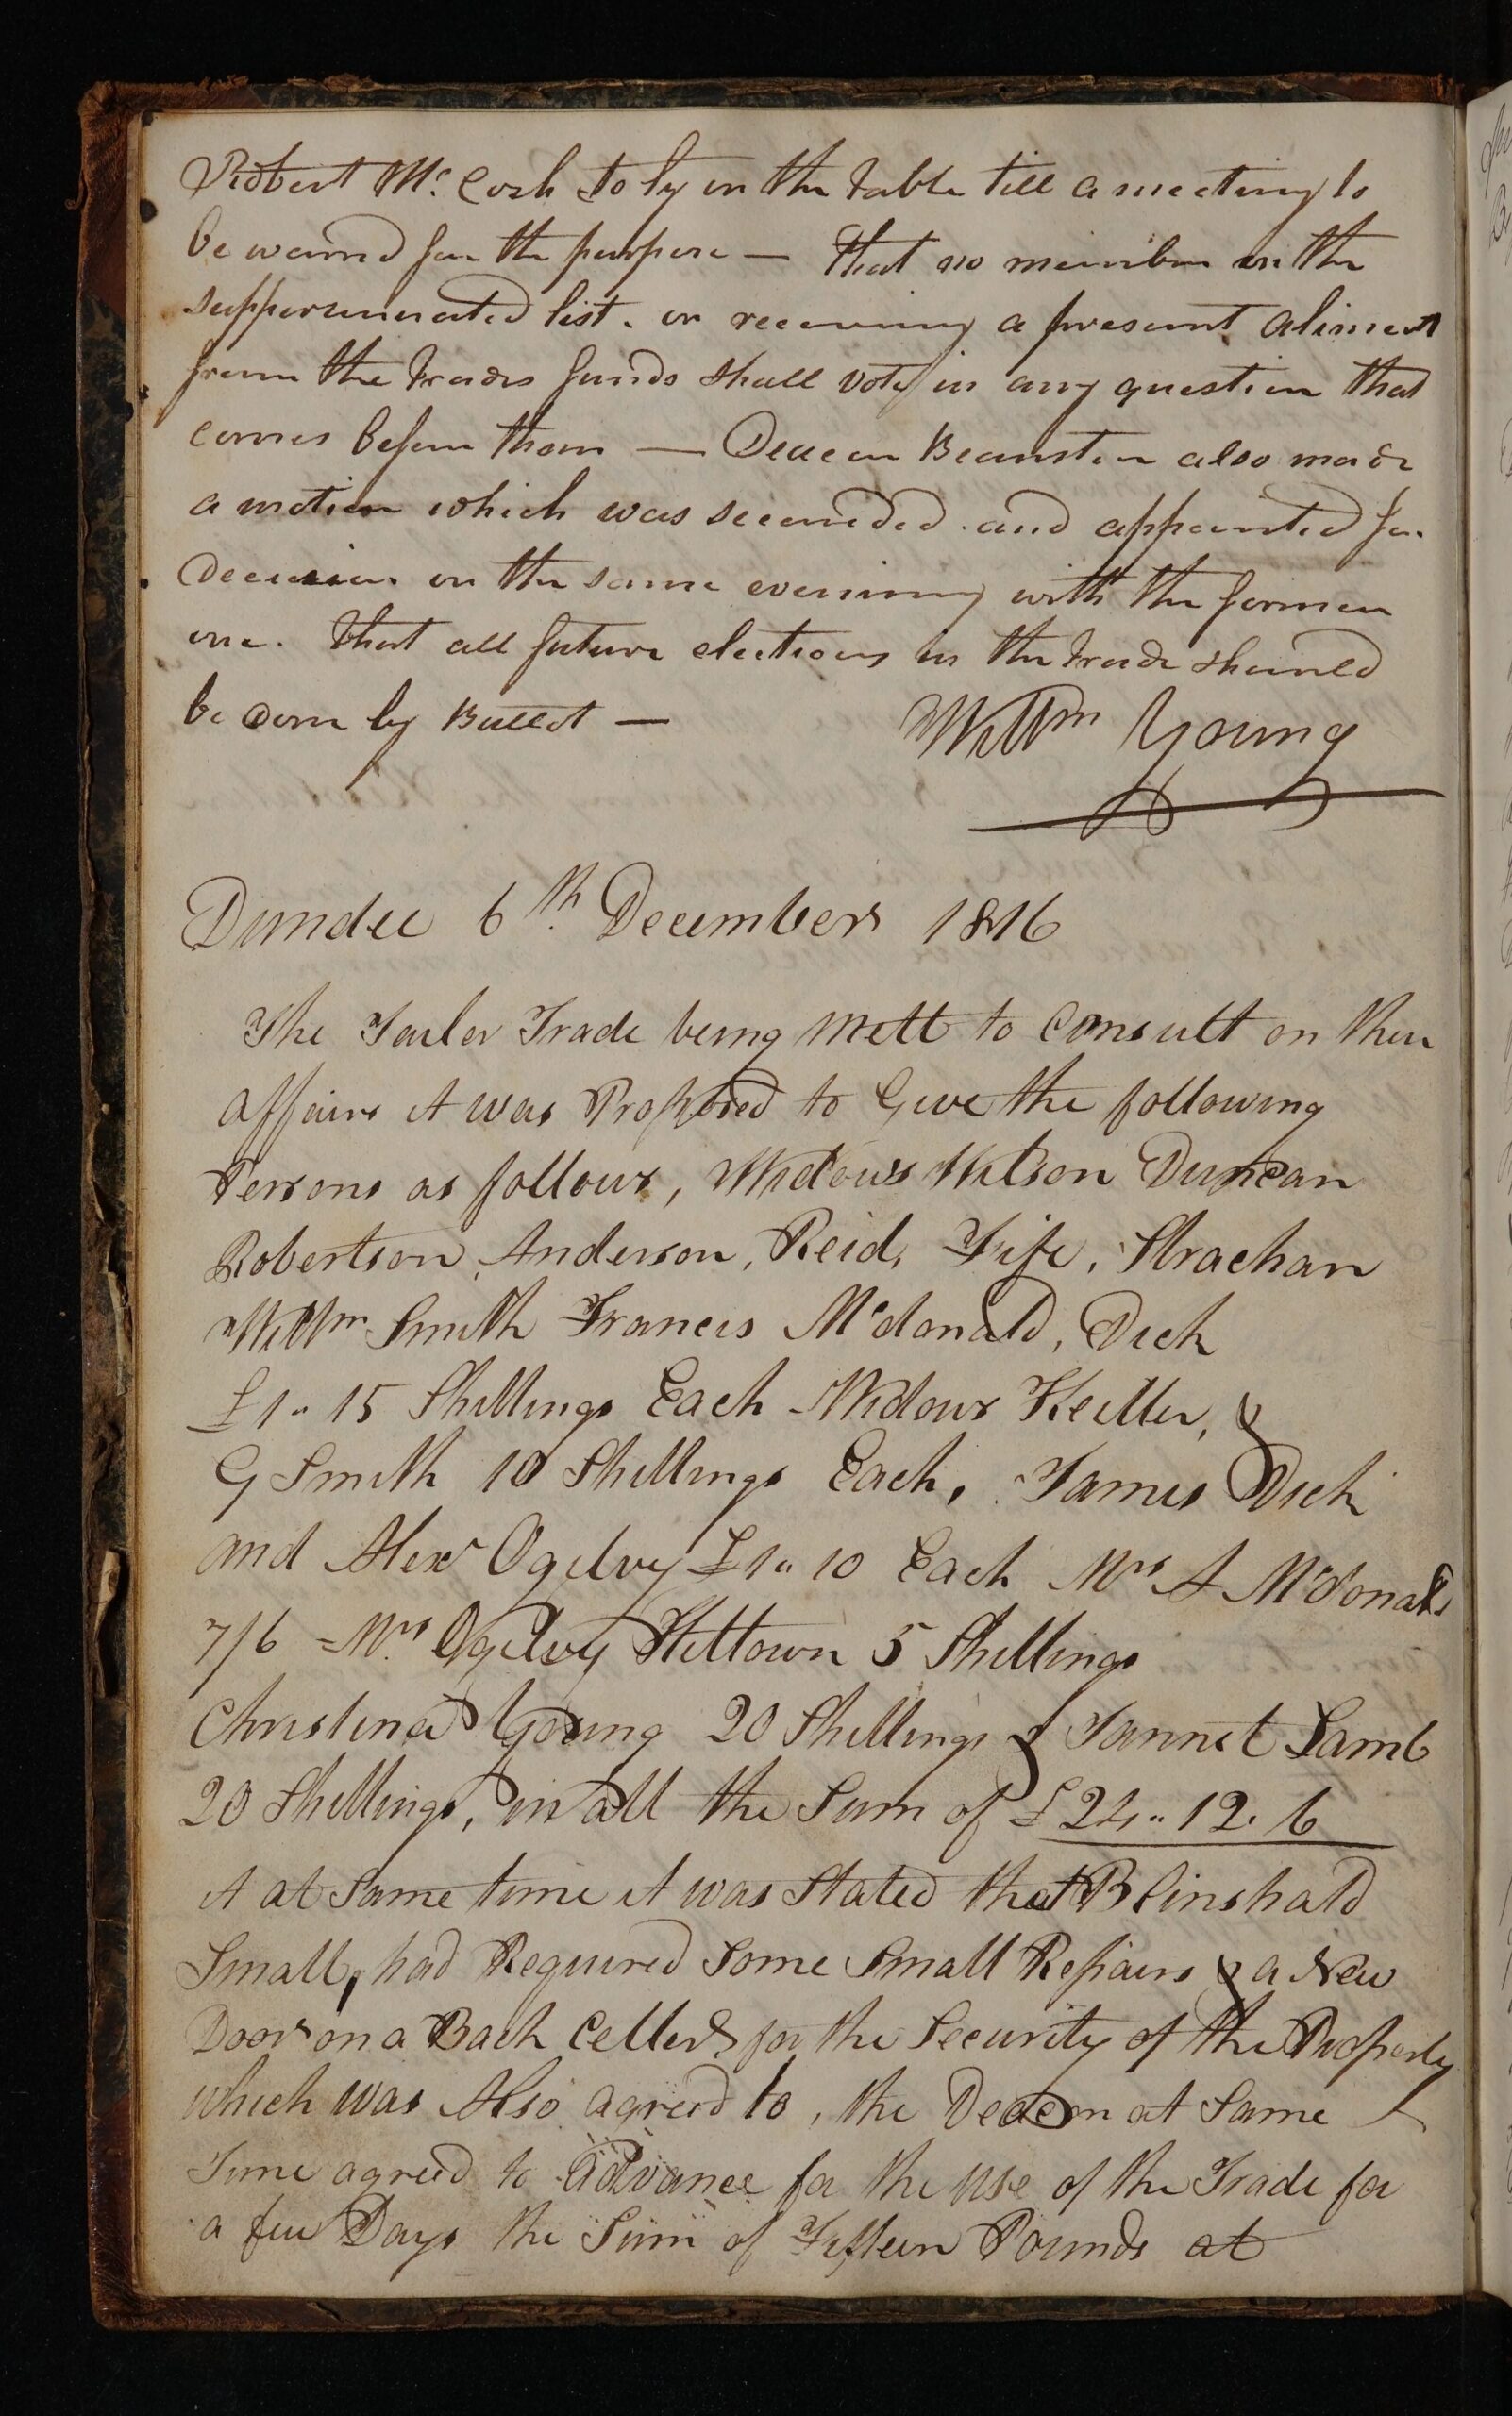 Robert Mc Cosh to ly on the table till a meeting to
be warned for the purpose — That no member on the
supperanuated list. or receiving a present aliment
from the trades funds shall vote in any question that
comes before them — Deacon Beanston also made
a motion which was seconded and appointed for
decision on the same evening with the former
one. That all future elections in the trade should
be done by Ballot —
Willm Young
Dundee 6th. December 1816
The Tailer Trade being mett to Consult on their
affairs it was Proposed to Give the following
Persons as follows, Widows Wilson Duncan
Robertson, Anderson, Reid, Fife, Strachan
Willm Smith Francis Mcdonald, Dick
£1" 15 Shillings Each Widows Keiller, &
G Smith 10 Shillings Each, James Dick
and Alexr Ogilvy £1" 10 Each Mrs A McDonald
7/6 Mrs Ogilvy Hiltown 5 Shillings
Christina Young 20 Shillings & Jannet Lamb
20 Shillings, in all the Sum of £24" 12. 6
it at Same time it was Stated that Blinshald
Small, had Required Some Small Repairs & a New
Door on a Back Celler for the Security of the Property
which was Also agreed to, the Deacon at Same
Time agreed to advance for the use of the Trade for
a few Days the Sum of Fifteen Pounds at